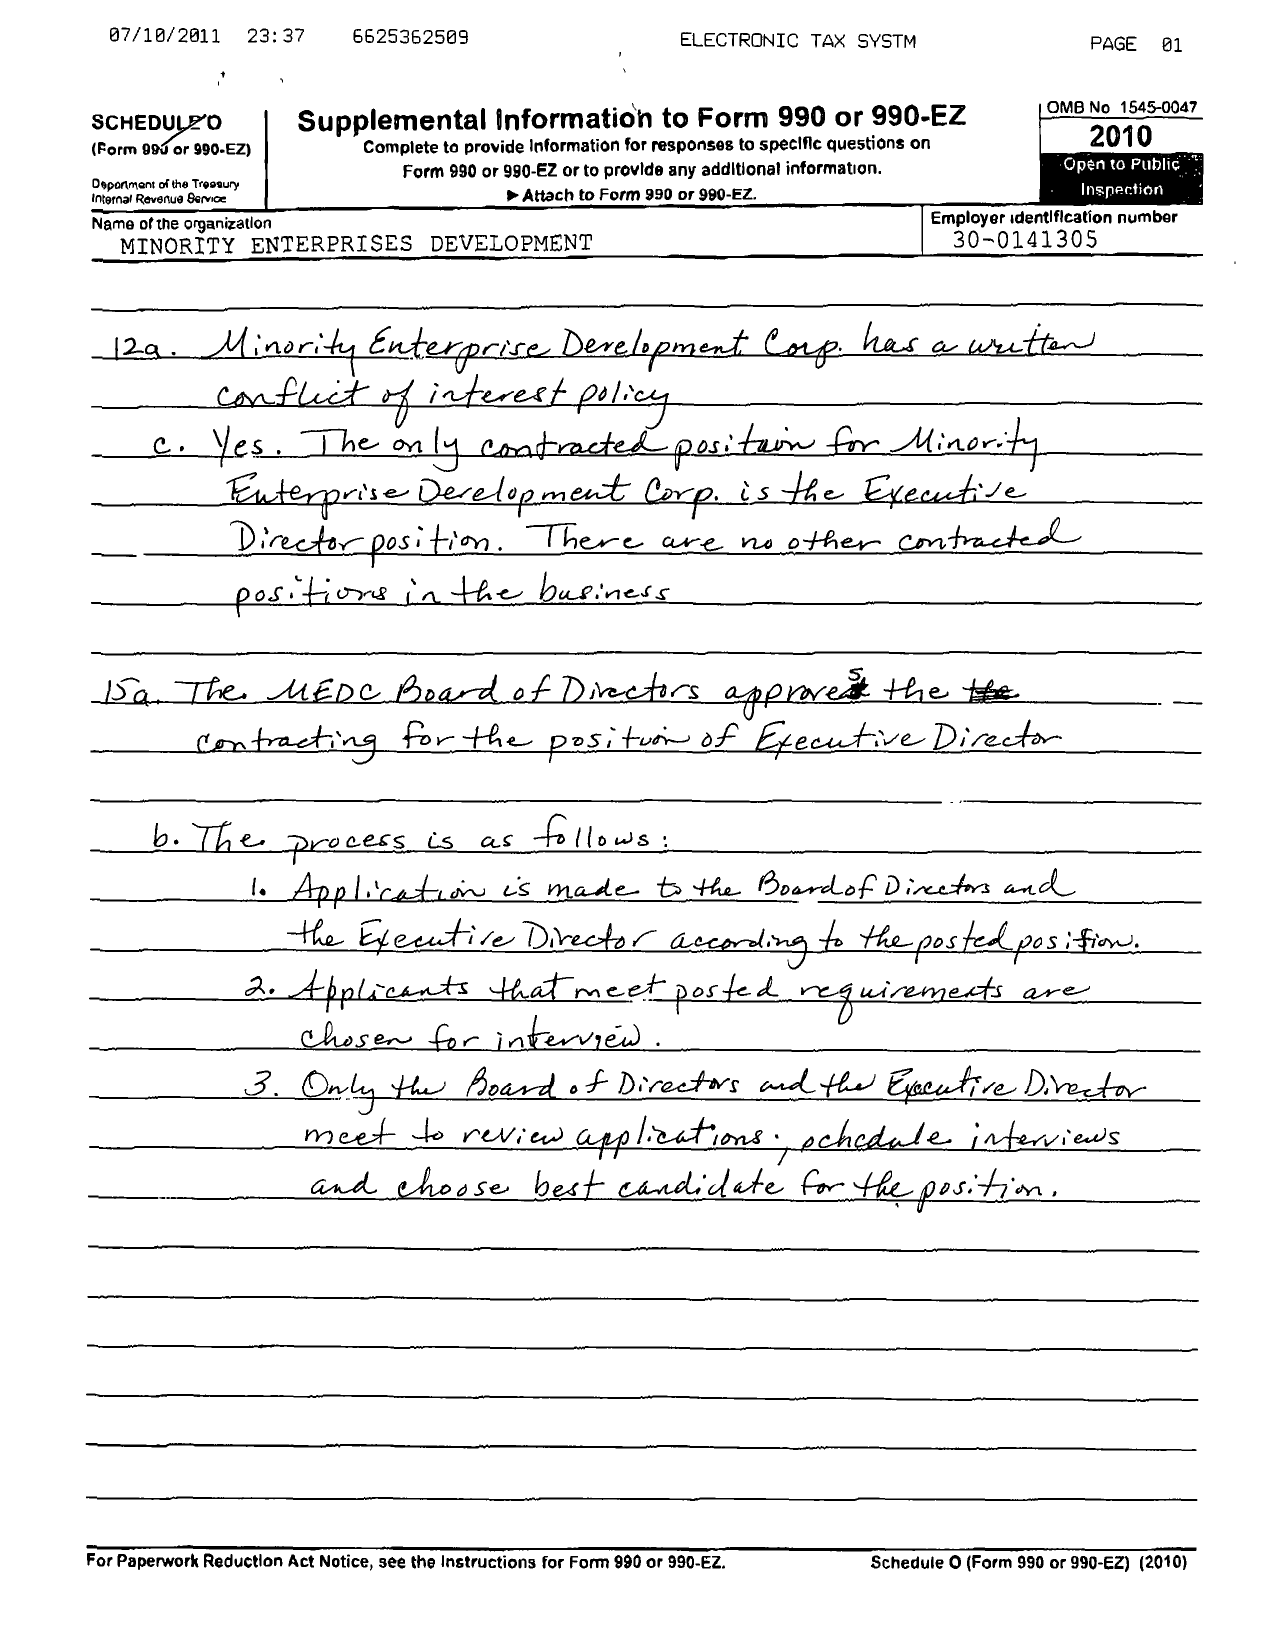 07/10/2011 23:37 6625362509 ELECTRONIC TAX SYSTM PAGE 01
SCHEDULE O
(Form 990 or 990-EZ)
Department of the Treasury
Internal Revenue Service
Supplemental Information to Form 990 or 990-EZ
Complete to provide Information for responses to specific questions on
Form 990 or 990-EZ or to provide any additional information.
▶ Attach to Form 990 or 990-EZ.
OMB No 1545-0047
2010
Open to Public
Inspection
Name of the organization
MINORITY ENTERPRISES DEVELOPMENT
Employer identification number
30-0141305
12a. Minority Enterprise Development Corp. has a written
conflict of interest policy
c. Yes. The only contracted position for Minority
Enterprise Development Corp. is the Executive
Director position. There are no other contracted
positions in the business
15a. The MEDC Board of Directors approves the the
contracting for the position of Executive Director
b. The process is as follows:
1. Application is made to the Board of Directors and
the Executive Director according to the posted position.
2. Applicants that meet posted requirements are
chosen for interview.
3. Only the Board of Directors and the Executive Director
meet to review applications, schedule interviews
and choose best candidate for the position.
For Paperwork Reduction Act Notice, see the Instructions for Form 990 or 990-EZ.
Schedule O (Form 990 or 990-EZ) (2010)